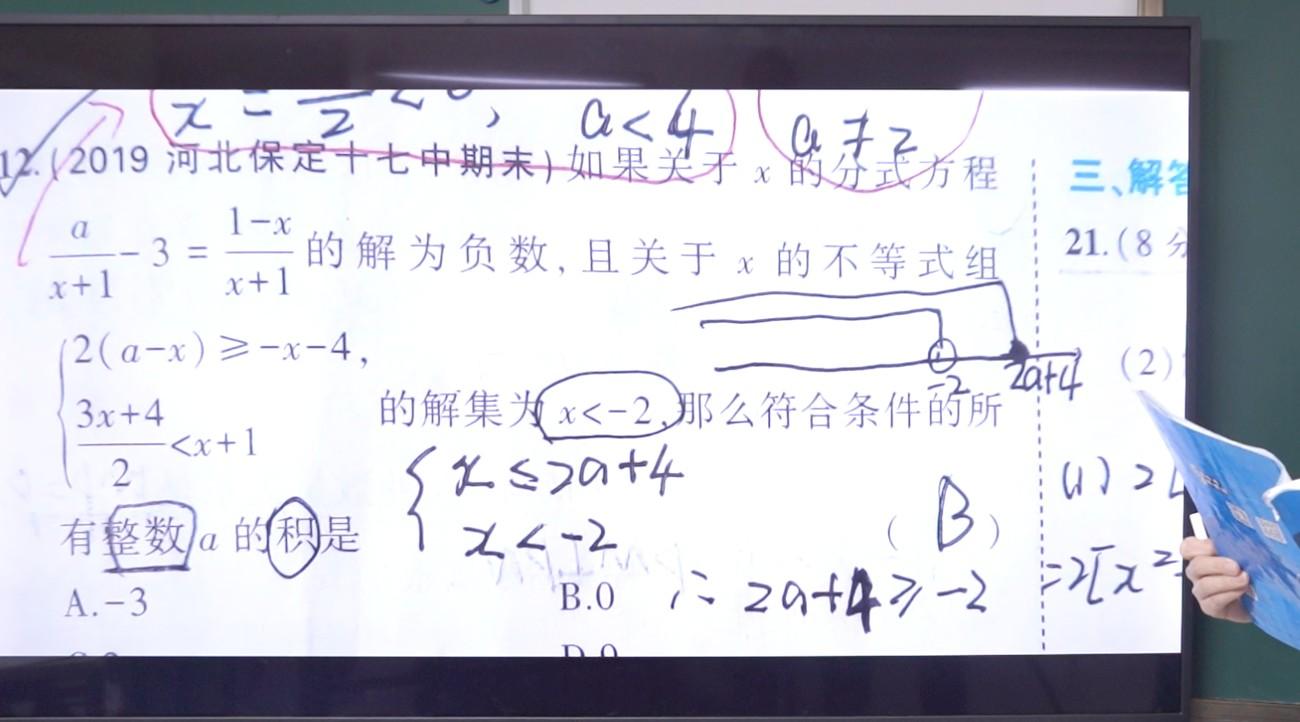 x = —/2 < 0, a<4 a≠2
12.(2019 河北保定十七中期末)如果关于 x 的分式方程
a/(x+1) - 3 = (1-x)/(x+1) 的解为负数,且关于 x 的不等式组
{2(a-x)≥-x-4,
(3x+4)/2 <x+1
的解集为 x<-2,那么符合条件的所
有整数 a 的积是 ( B )
A.-3 B.0
-2 2a+4
{x≤2a+4
x<-2
∴ 2a+4≥-2
三、解答
21.(8 分
(2)
(1) 2[
=2[x²-